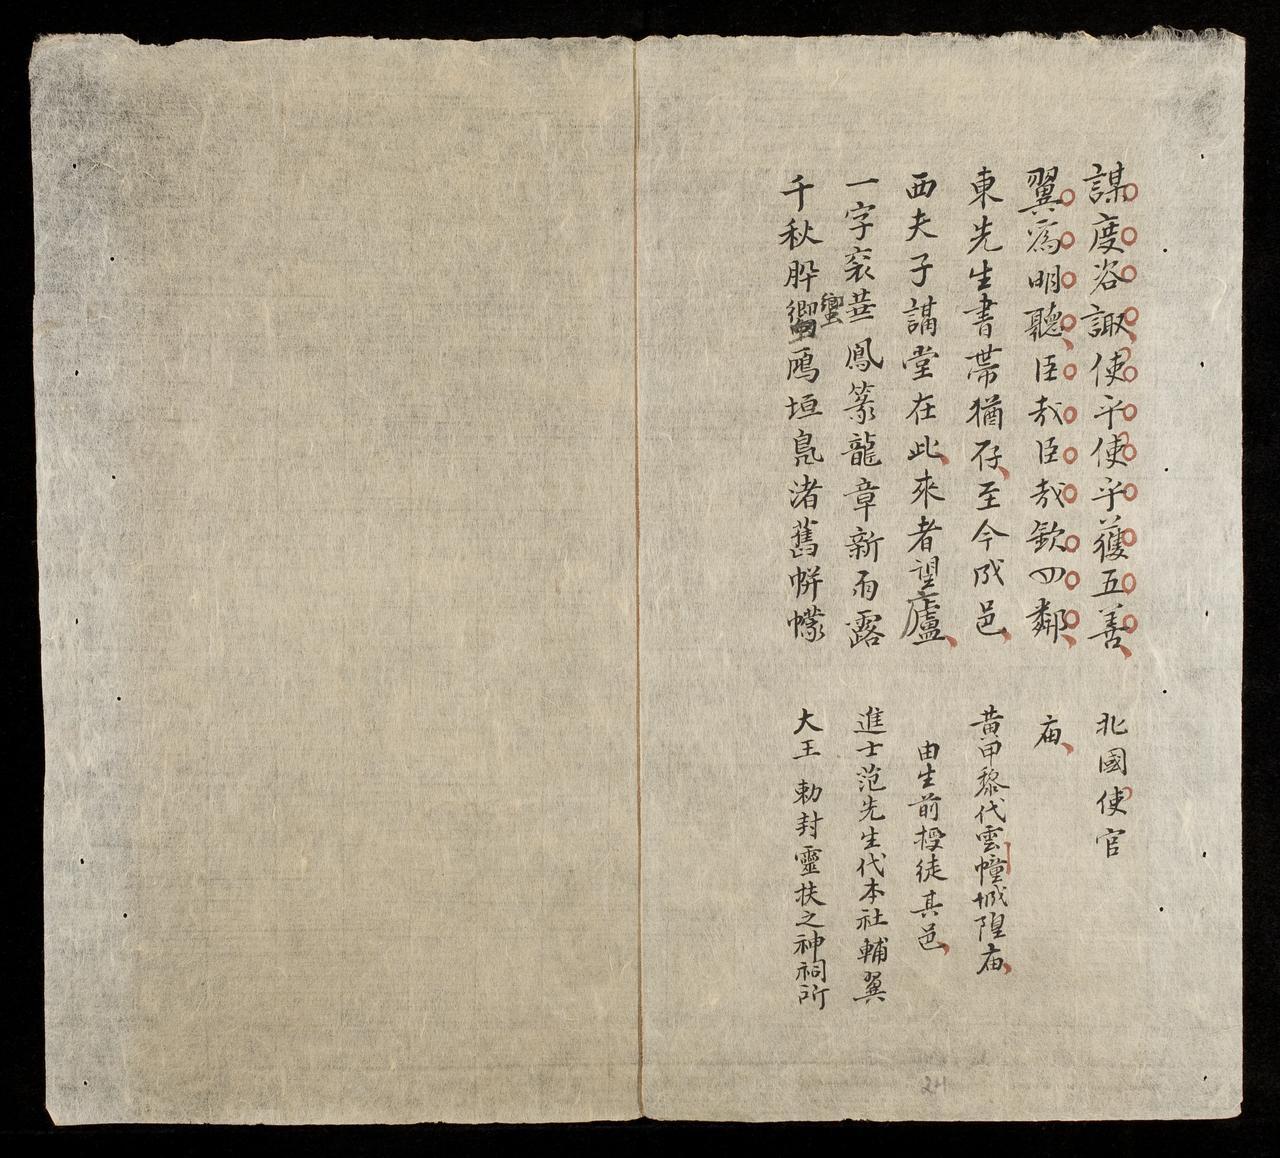 謀度咨諏使乎使乎獲五善 北國使官
翼爲明聽臣哉臣哉欽四鄰 庙
東先生書帶猶存至今成邑 黄甲黎代雲幢城隍庙
西夫子講堂在此來者望廬 由生前授徒其邑
一字衮華鳳篆龍章新雨露 進士范先生代本社輔翼
千秋肸蠁鴈垣鳧渚舊帡幪 大王 勅封靈扶之神祠所
蠁
24